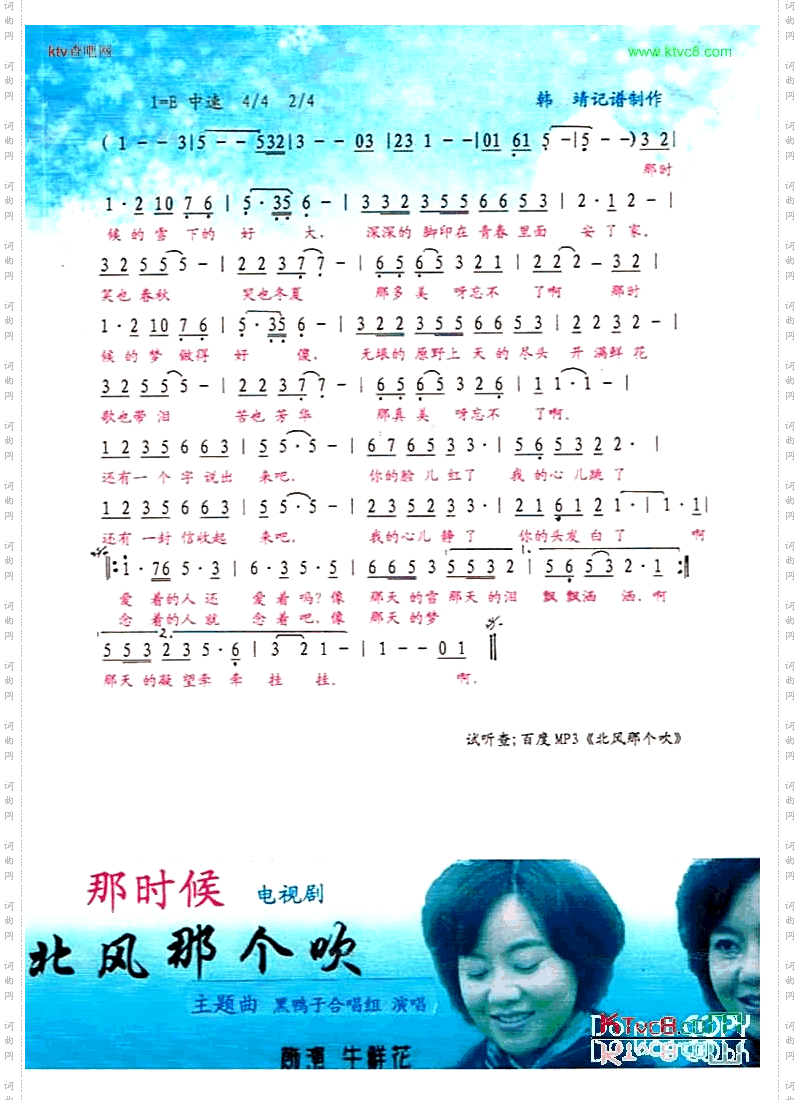 ktv查吧网 www.ktvc8.com
1=E 中速 4/4 2/4 韩 靖记谱制作
( 1 - - 3 | 5 - - 532 | 3 - - 03 | 23 1 - - | 01 61 5 - | 5 - - ) 3 2 |
那时
1 · 2 10 7 6 | 5 · 35 6 - | 3 3 2 3 5 5 6 6 5 3 | 2 · 1 2 - |
候 的 雪 下的 好 大, 深深的 脚印在 青春 里面 安 了 家。
3 2 5 5 5 - | 2 2 3 7 7 - | 6 5 6 5 3 2 1 | 2 2 2 - 3 2 |
笑也 春秋 哭也冬夏 那多 美 呀忘不 了啊 那时
1 · 2 10 7 6 | 5 · 35 6 - | 3 2 2 3 5 5 6 6 5 3 | 2 2 3 2 - |
候 的 梦 做得 好 傻, 无垠的 原野上 天 的 尽头 开 满鲜 花
3 2 5 5 5 - | 2 2 3 7 7 - | 6 5 6 5 3 2 6 | 1 1 · 1 - |
歌也带 泪 苦也 芳 华 那真 美 呀忘不 了啊。
1 2 3 5 6 6 3 | 5 5 · 5 - | 6 7 6 5 3 3 · | 5 6 5 3 2 2 · |
还有一 个 字 说出 来吧, 你的脸 儿 红了 我 的心 儿跳 了
1 2 3 5 6 6 3 | 5 5 · 5 - | 2 3 5 2 3 · | 2 1 6 1 2 1 · | 1 · 1 |
还有 一封 信收起 来吧, 我的心儿 静 了 你的头发 白 了 啊
1.
1 · 76 5 · 3 | 6 · 3 5 · 5 | 6 6 5 3 5 5 3 2 | 5 6 5 3 2 · 1 :
爱 着的人 还 爱 着 吗? 像 那天 的雪 那天 的泪 飘飘洒 洒, 啊
念 着的人 就 念 着 吧, 像 那天 的梦
2.
5 5 3 2 3 5 · 6 | 3 2 1 - | 1 - - 0 1
那天 的凝 望牵 牵 挂 挂, 啊,
试听查; 百度 MP3《北风那个吹》
那时候 电视剧
北风那个吹
主题曲 黑鸭子合唱组 演唱
KTvc8.com
DO COPY